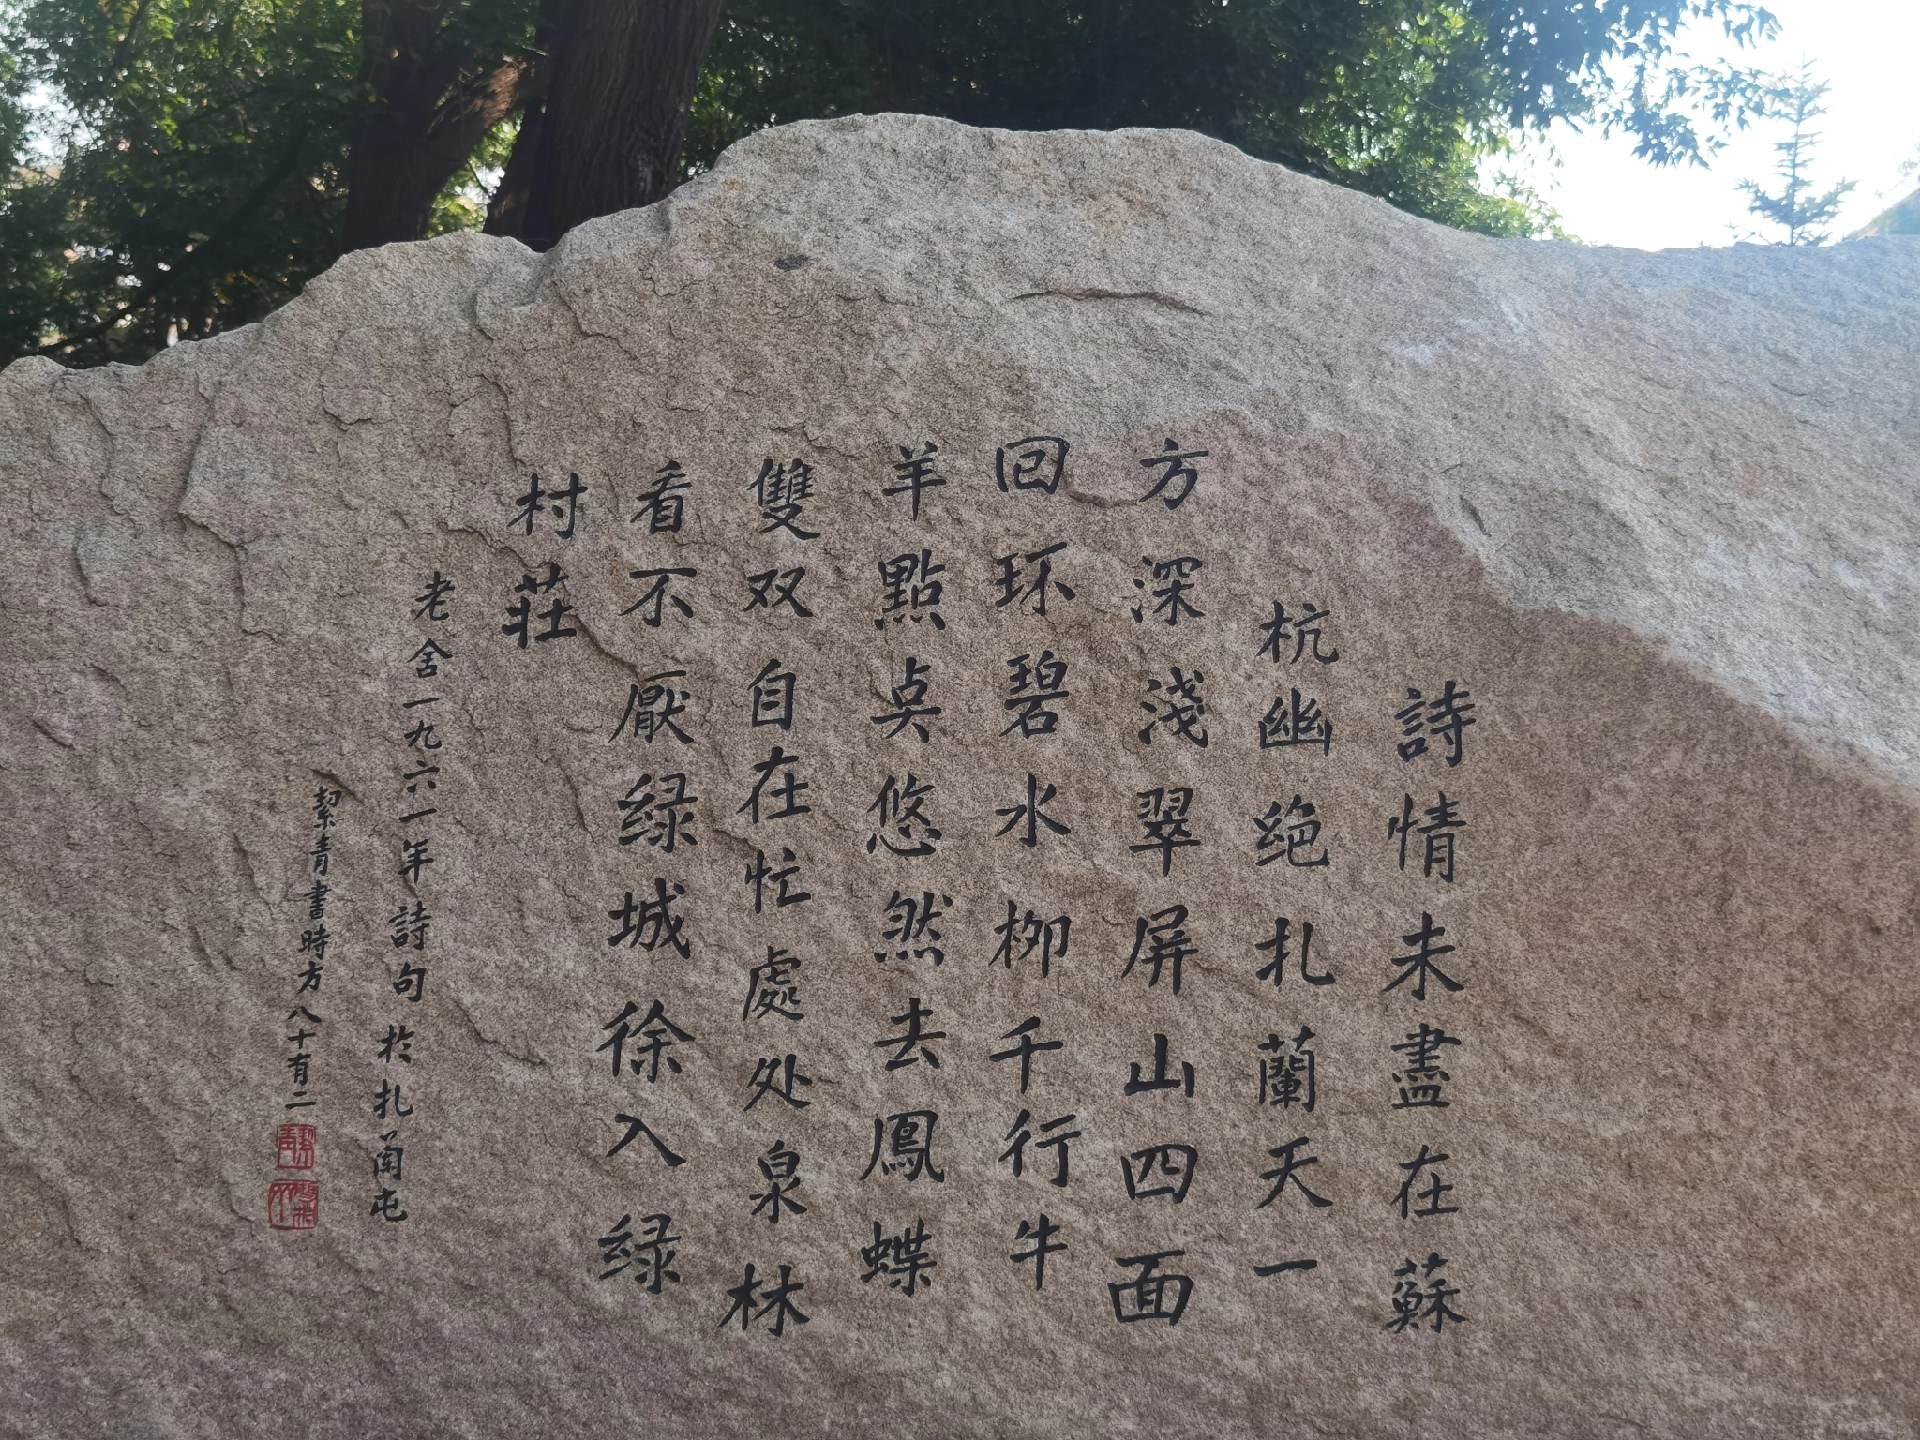 詩情未盡在蘇
杭幽绝扎蘭天一
方深淺翠屏山四面
回环碧水栁千行牛
羊點奌悠然去鳳蝶
雙双自在忙處处泉林
看不厭绿城徐入绿
村莊
老舍一九六一年詩句於扎蘭屯
絜青書時方八十有二